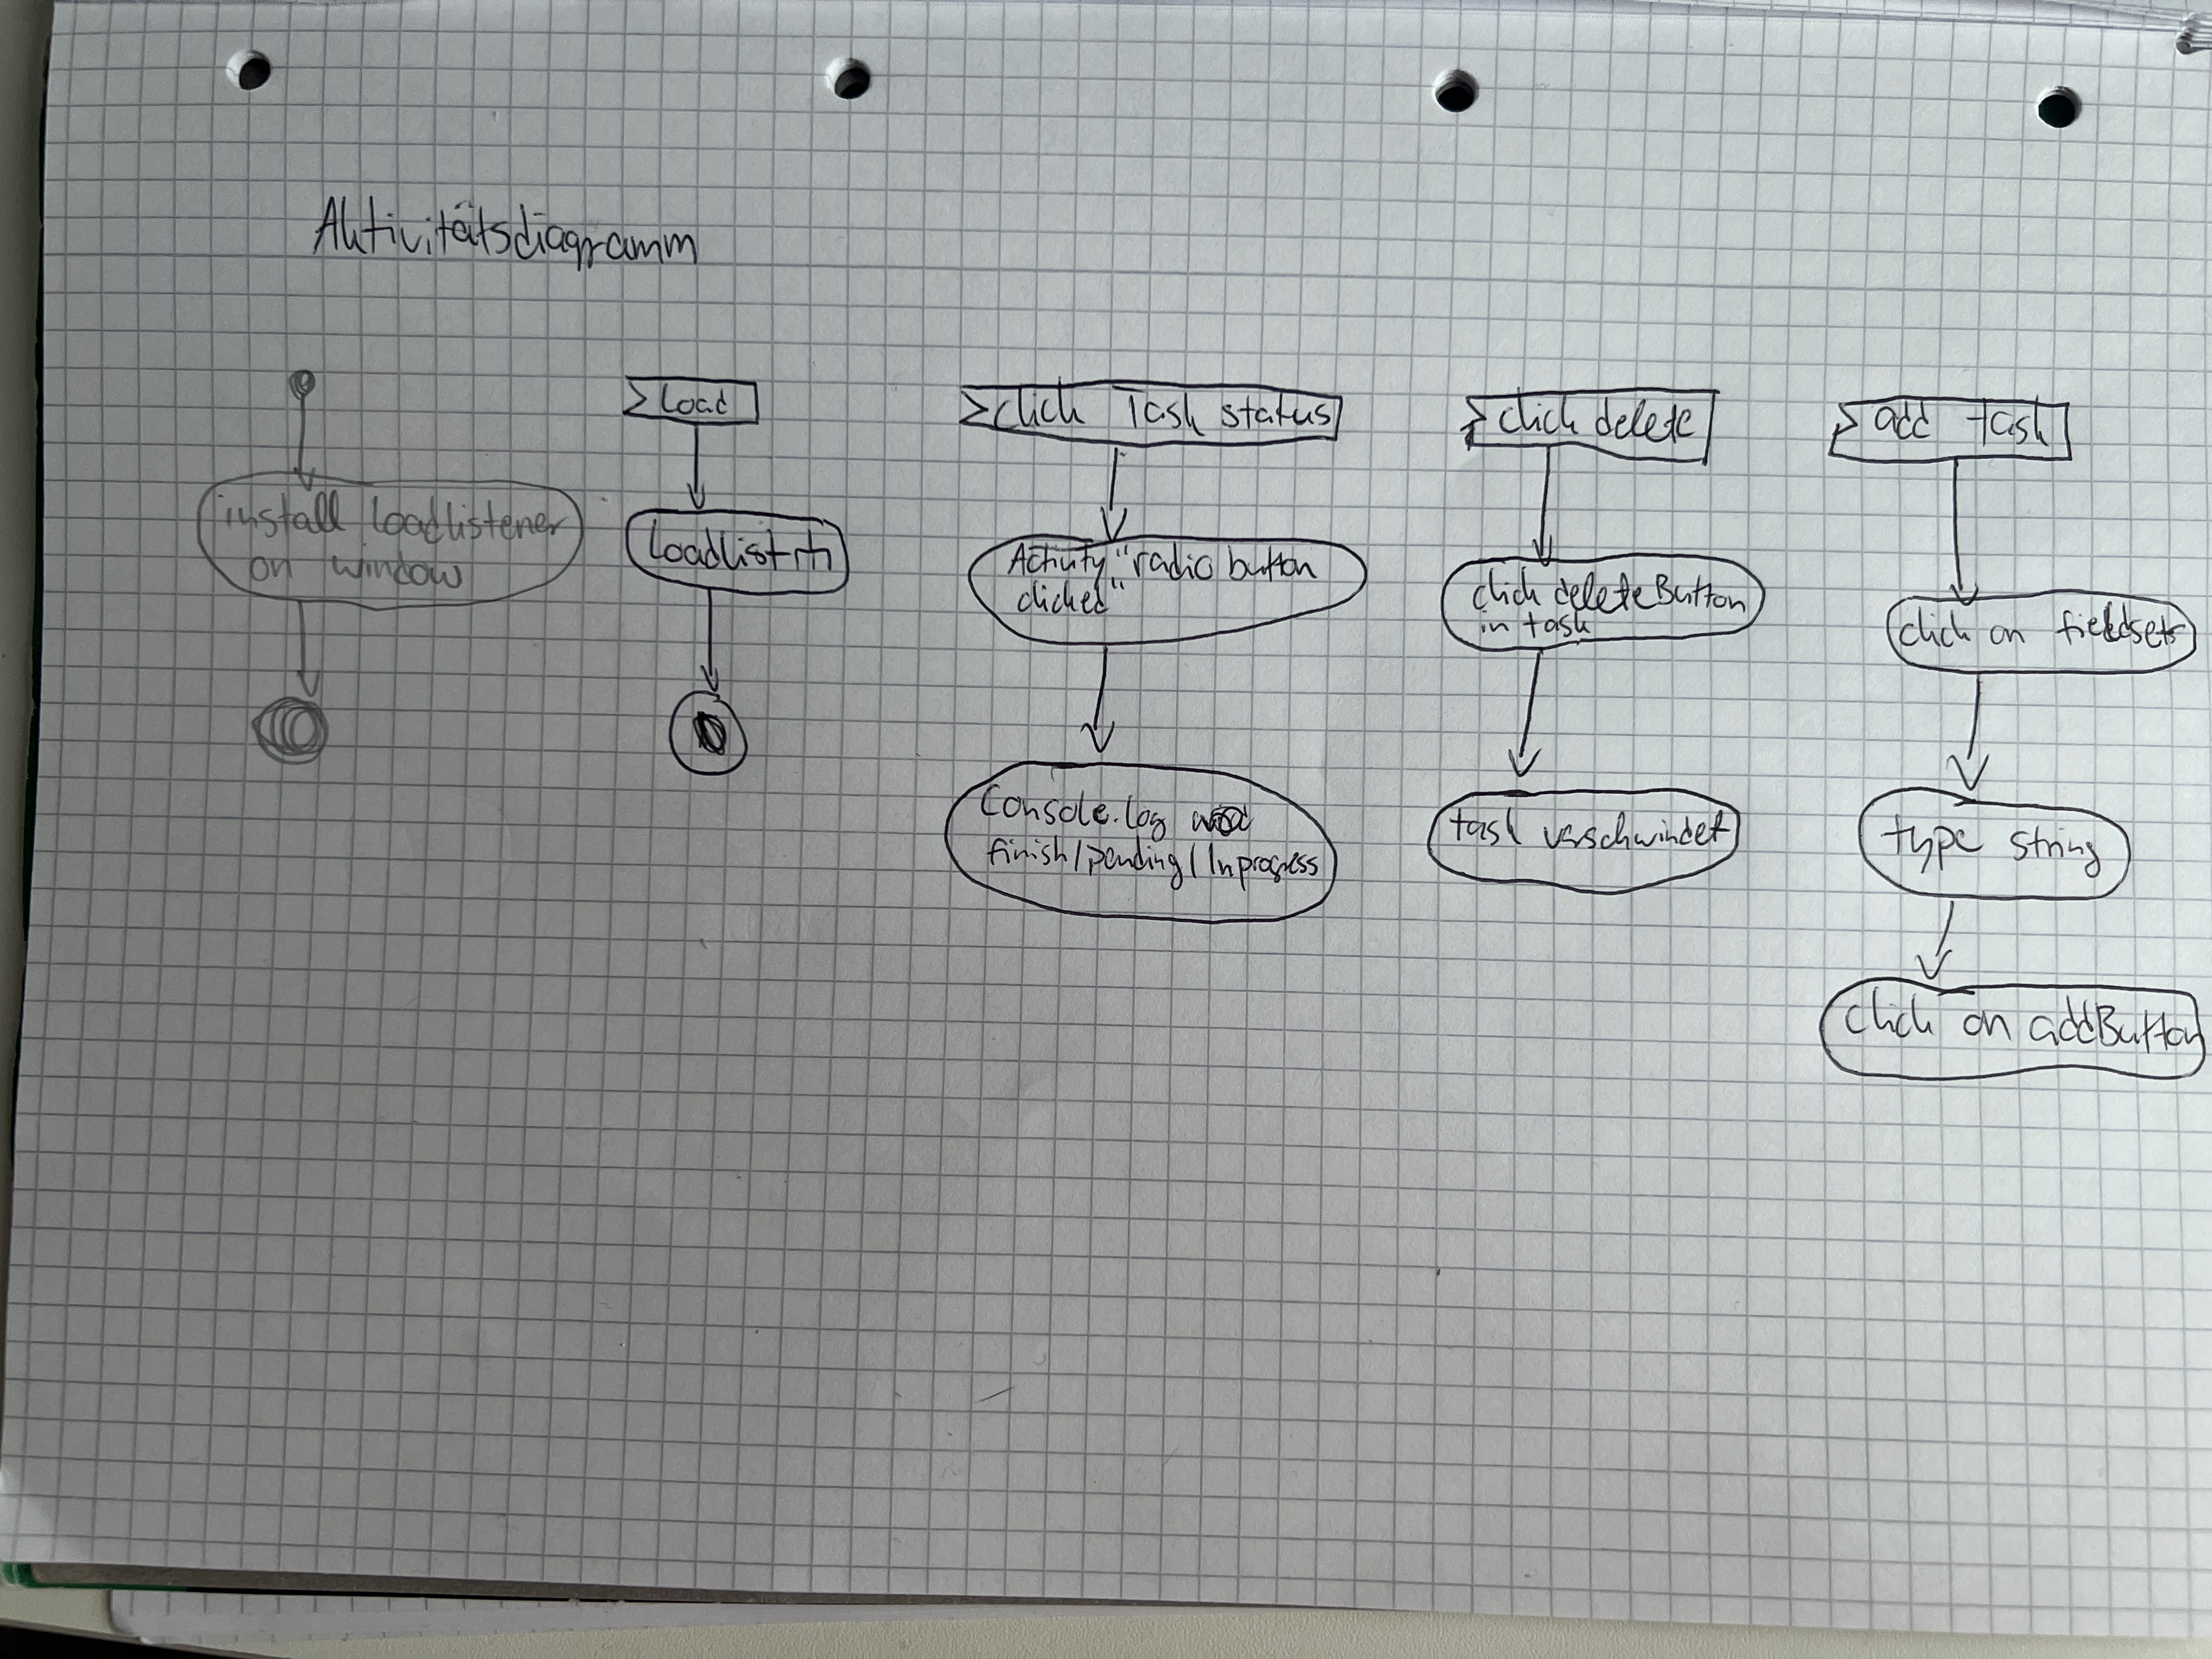 Aktivitätsdiagramm
install loadlistener
on window
load
loadlist
click Task status
Activity "radio button
clicked"
Console.log
finish/pending/Inprogress
click delete
click deleteButton
in task
task verschwindet
add task
click on fieldsets
type string
click on addButton